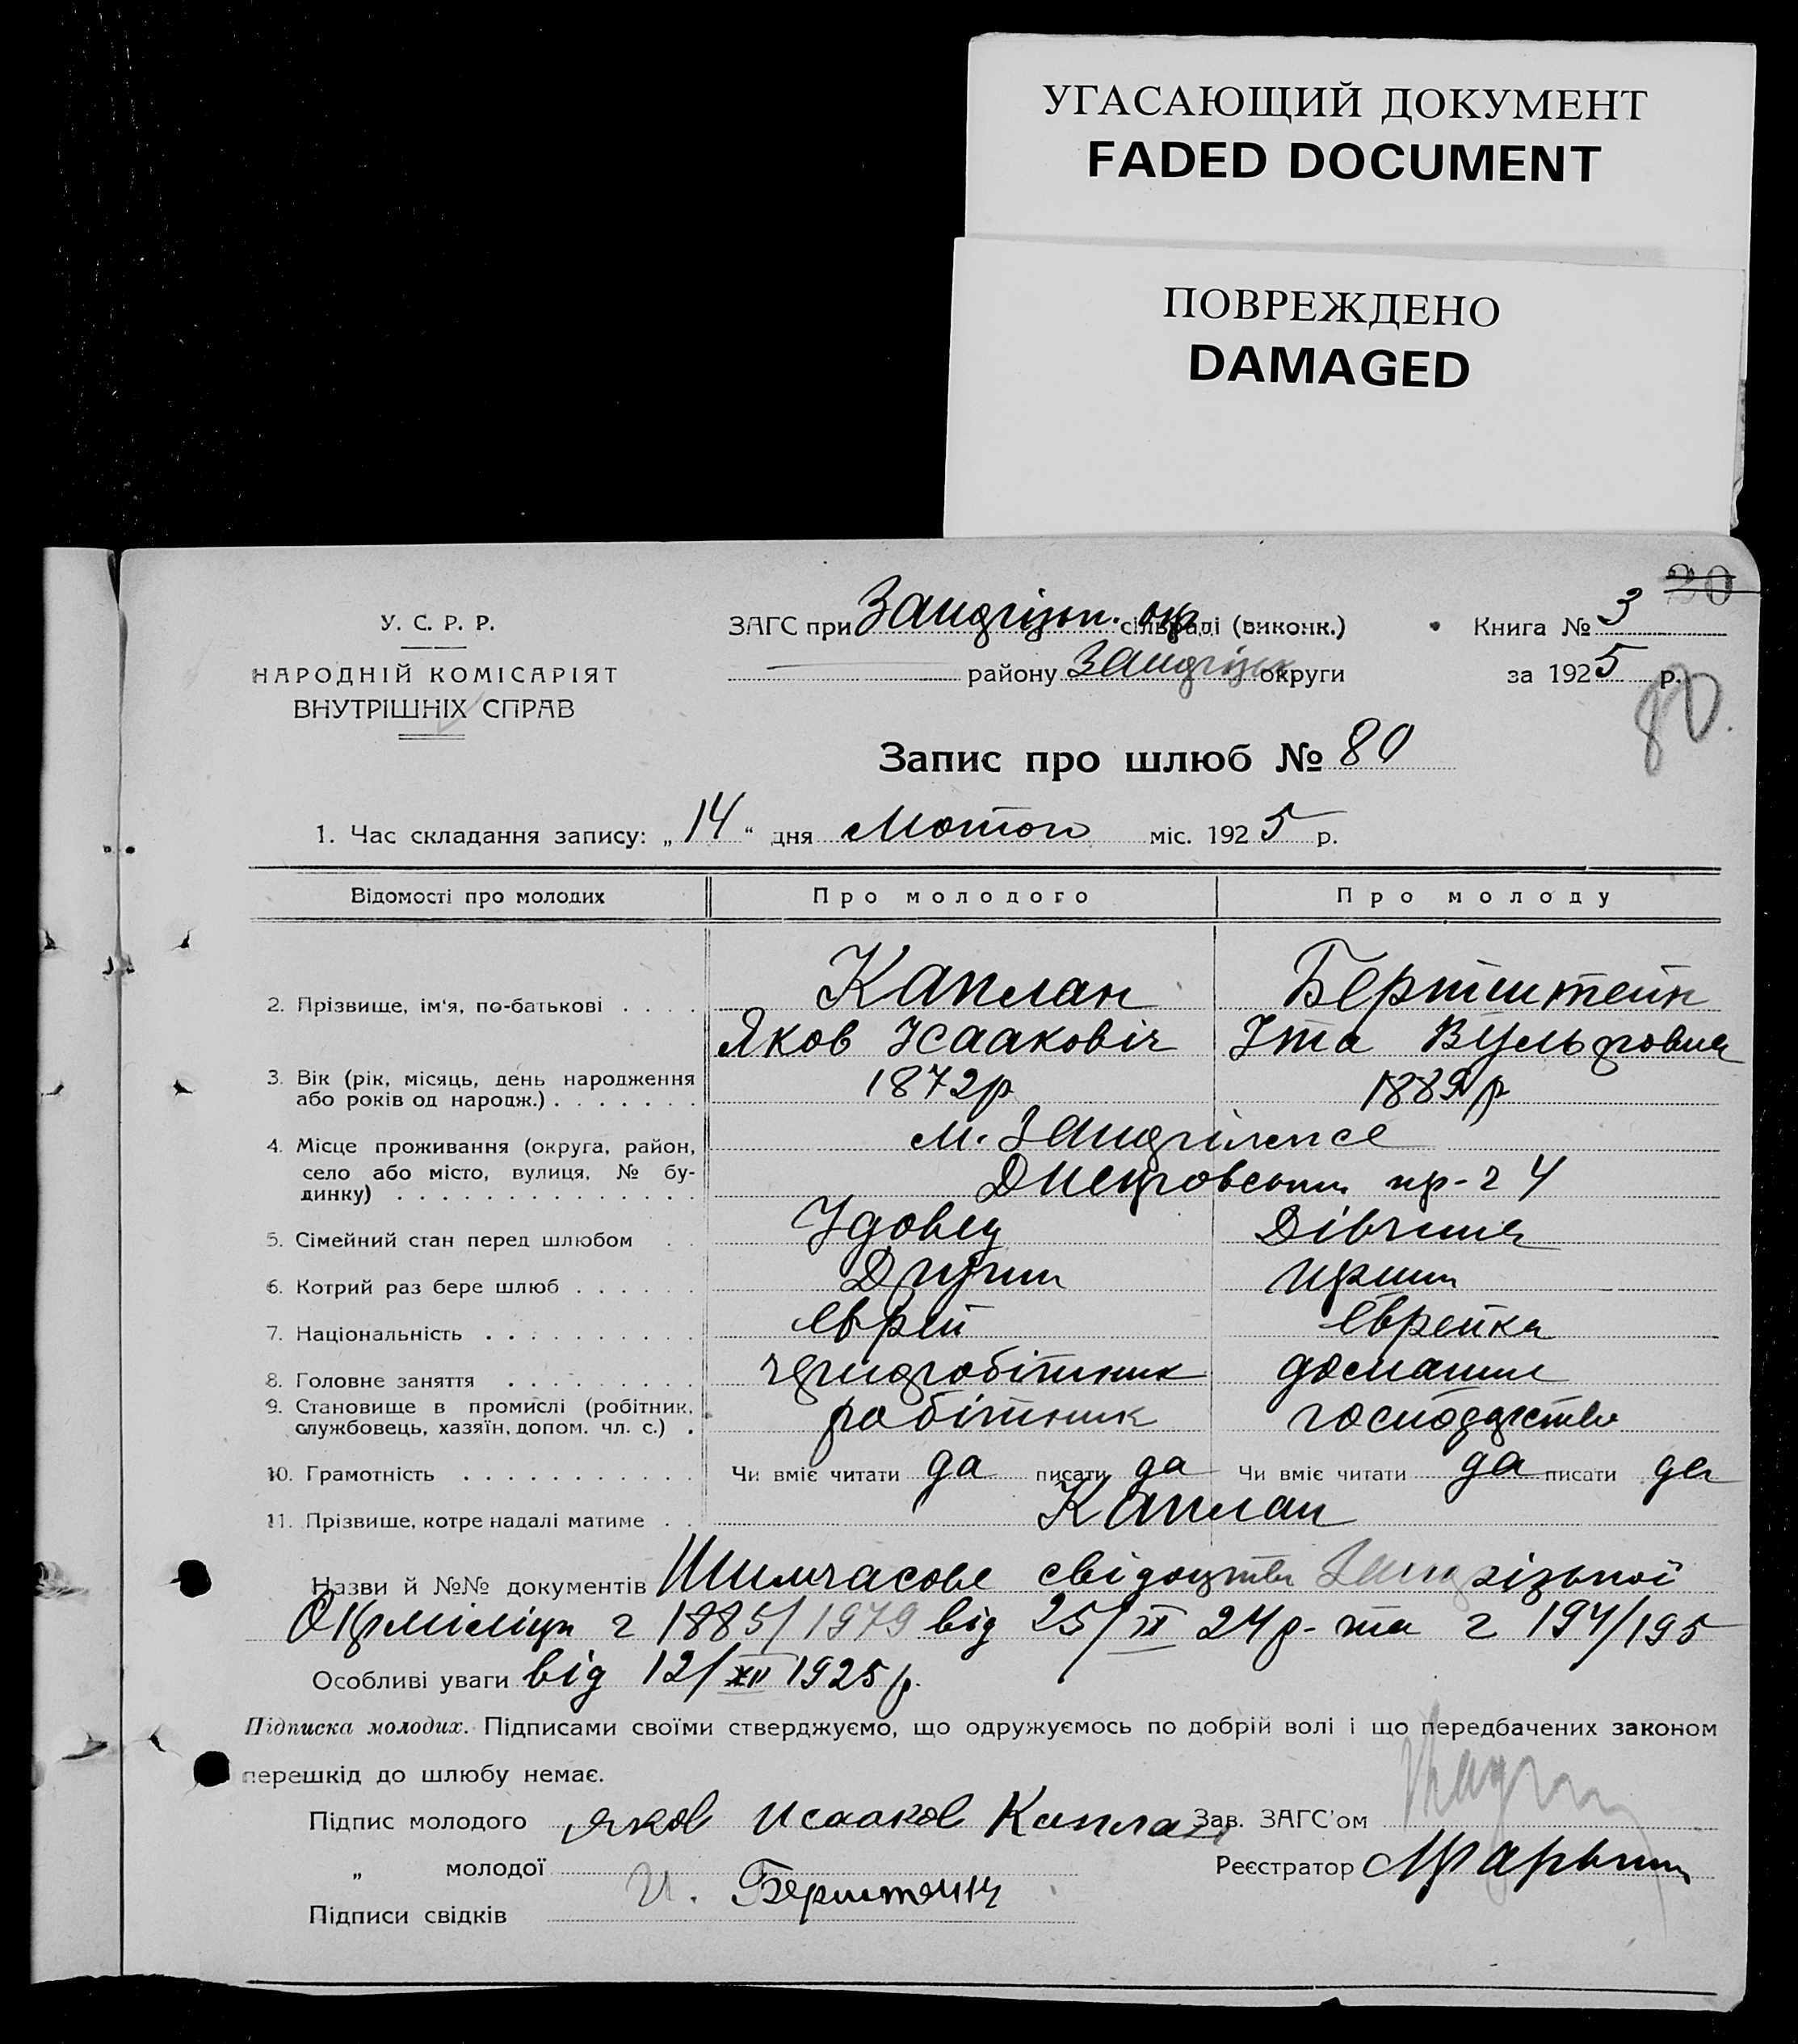 УГАСАЮЩИЙ ДОКУМЕНТ
FADED DOCUMENT
ПОВРЕЖДЕНО
DAMAGED
30
У. С. Р. Р.
НАРОДНІЙ КОМІСАРІЯТ
ВНУТРІШНІХ СПРАВ
ЗАГС при Запоріжн. окр. сільраді (виконк.)
району Запоріжж округи
Книга № 3
за 1925 р.
80.
Запис про шлюб № 80
1. Час складання запису: „14“ дня Лютого міс. 1925 р.
Відомості про молодих Про молодого Про молоду
2. Прізвище, ім'я, по-батькові . . . . Каплан Бернштейн
Яков Ісаакович Іта Вульфовна
3. Вік (рік, місяць, день народження
або років од народж.) . . . . . . . 1872р 1889р
4. Місце проживання (округа, район,
село або місто, вулиця, № бу-
динку) . . . . . . . . . . . . . . м. Запоріжжє
пр- 2 4
5. Сімейний стан перед шлюбом . . Удовец Дівчина
6. Котрий раз бере шлюб . . . . . . Другий перший
7. Національність . . . . . . . . . . Єврей Єврейка
8. Головне заняття . . . . . . . . . чорноробітник домашнє
9. Становище в промислі (робітник,
службовець, хазяїн, допом. чл. с.) . робітник господарство
10. Грамотність . . . . . . . . . . . Чи вміє читати да писати да Чи вміє читати да писати да
11. Прізвище, котре надалі матиме . . Каплан
Назви й №№ документів Тимчасове свідоцтво Запорізької
Окрміліції 2 1885/1979 від 25/ 24р. та 2 194/195
Особливі уваги від 12/XII 1925р.
Підписка молодих. Підписами своїми стверджуємо, що одружуємось по добрій волі і що передбачених законом
перешкід до шлюбу немає.
Підпис молодого Яков Исааков Каплан Зав. ЗАГС'ом
„ молодої И. Бернштейн Реєстратор
Підписи свідків